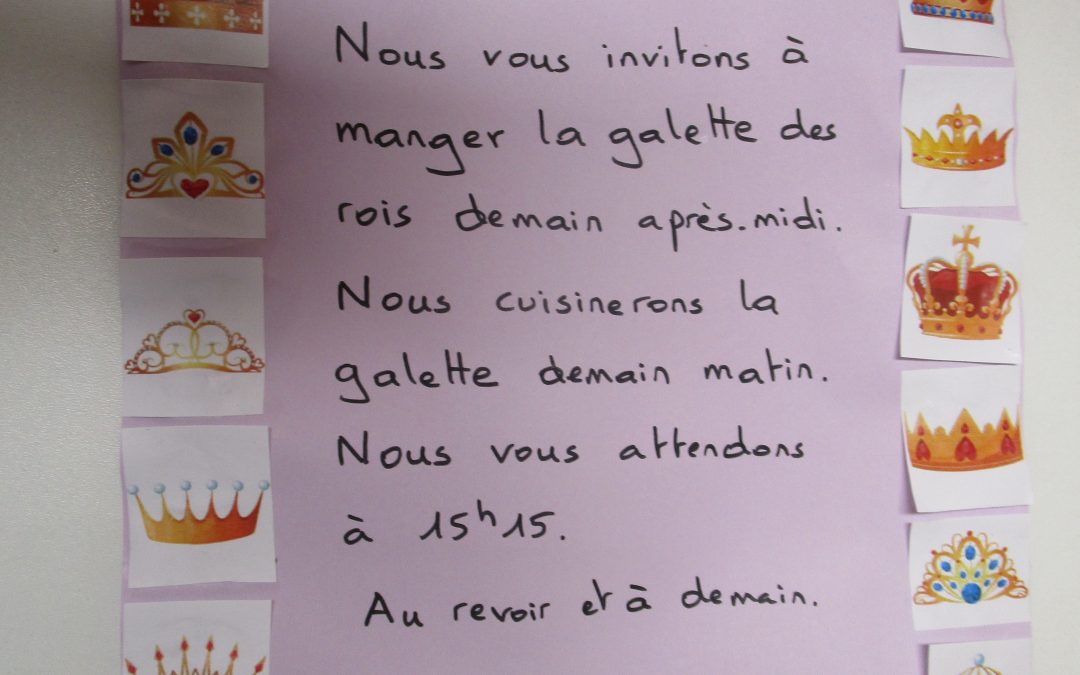 Nous vous invitons à
manger la galette des
rois demain après-midi.
Nous cuisinerons la
galette demain matin.
Nous vous attendons
à 15h15.
Au revoir et à demain.